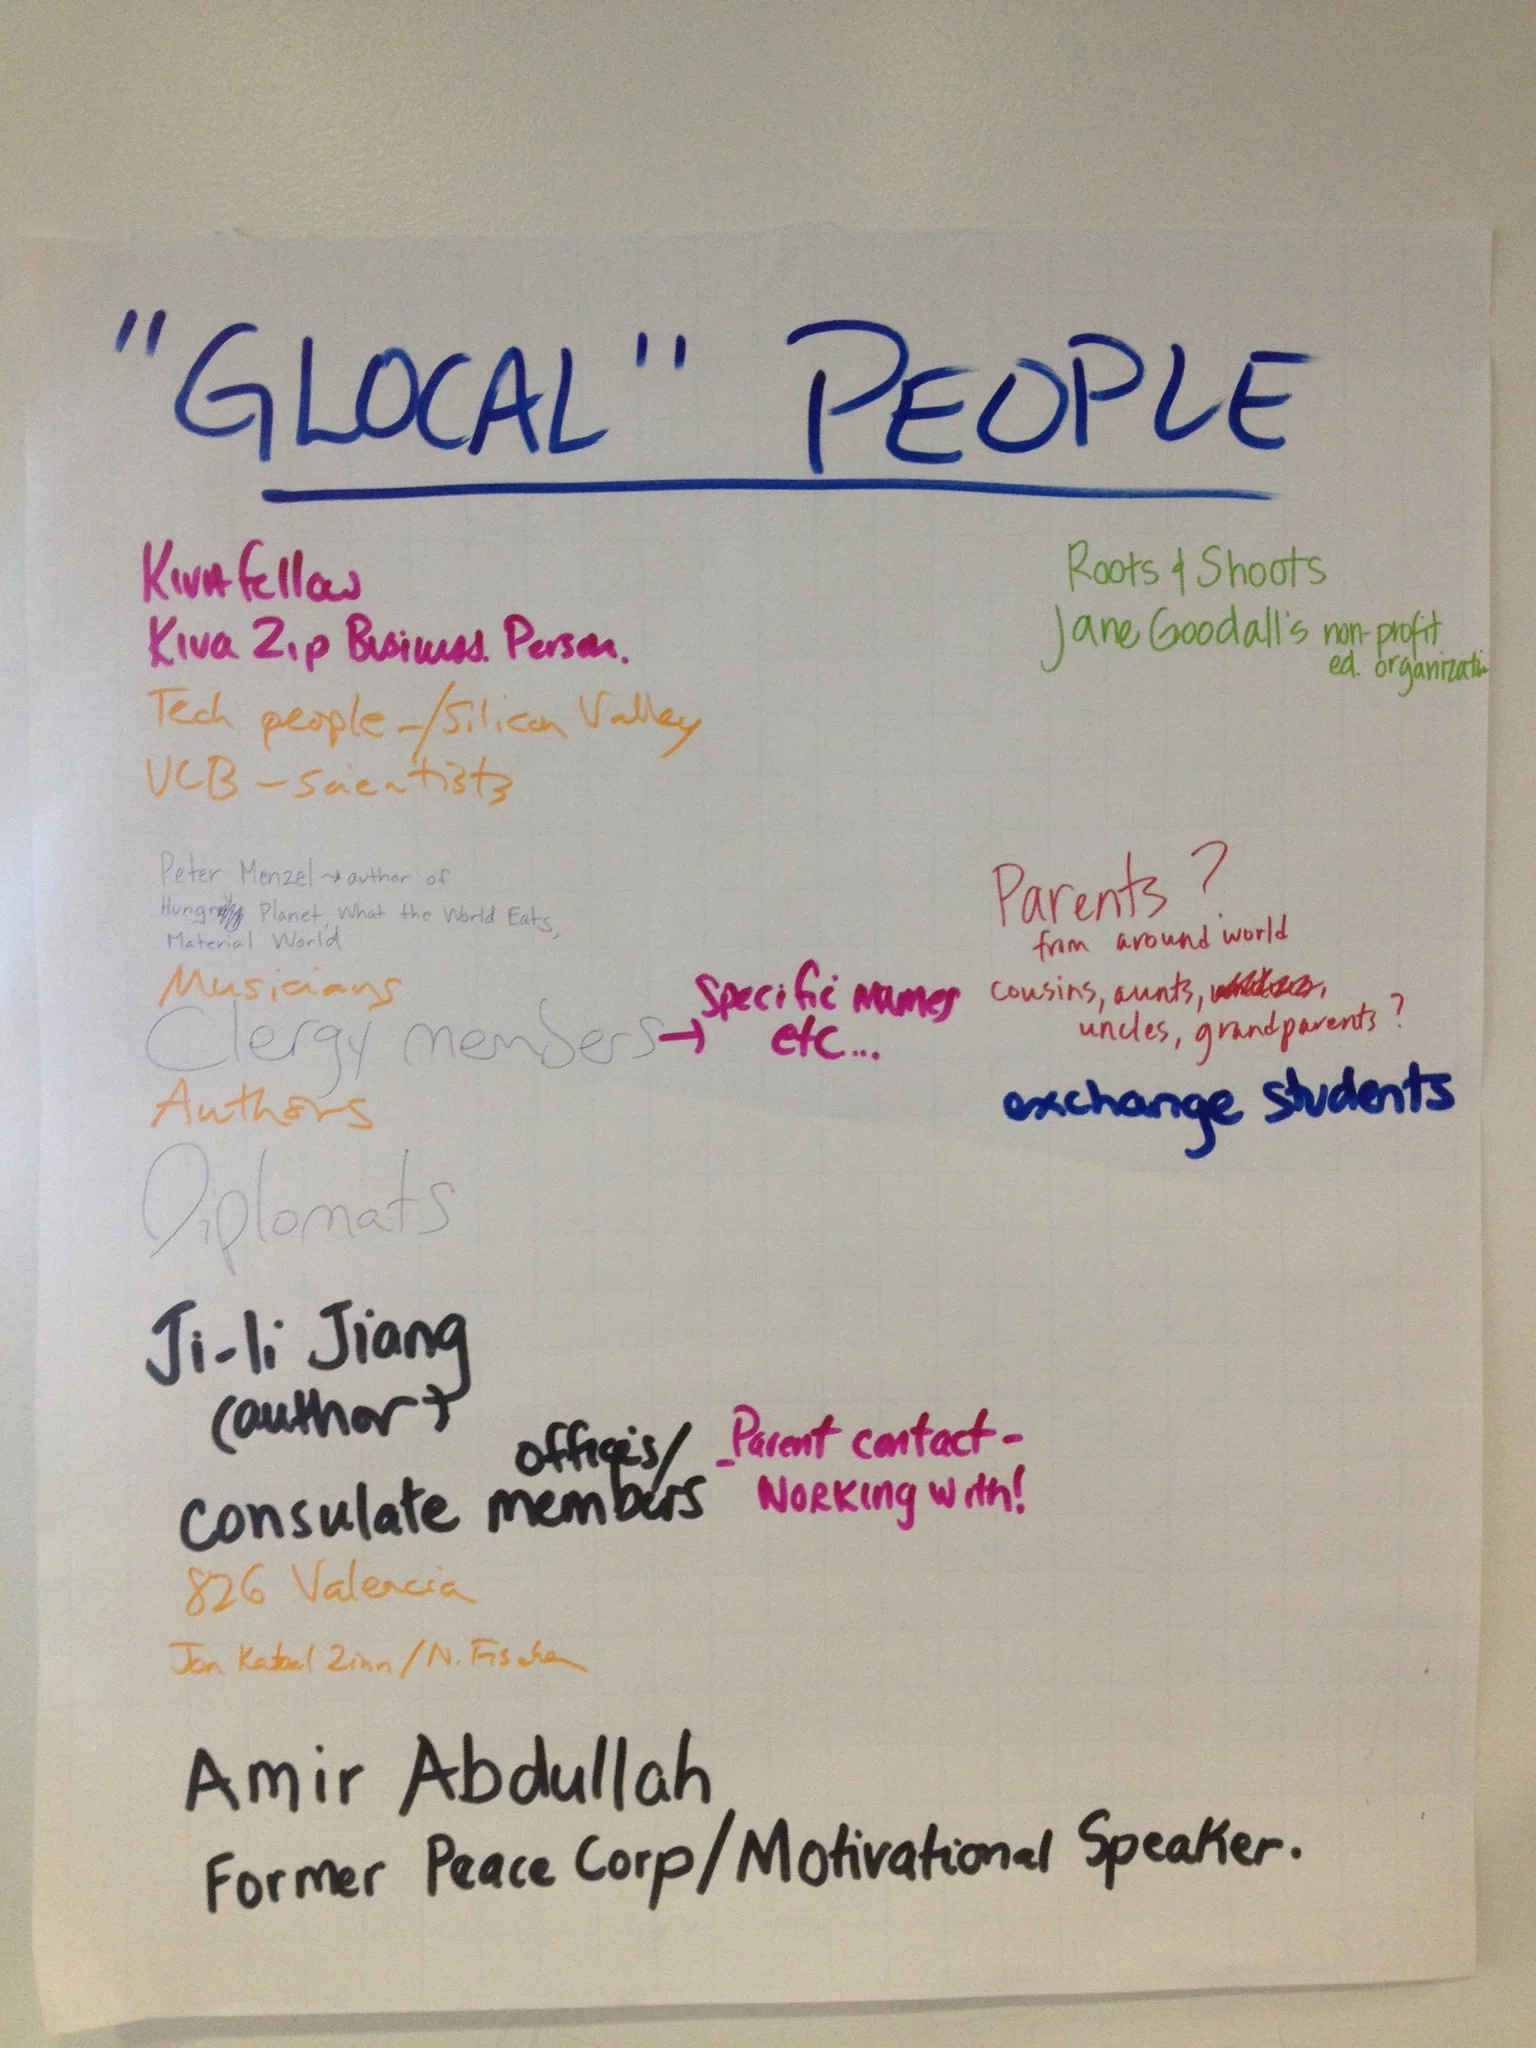 "GLOCAL" PEOPLE
Kiva fellow
Kiva Zip Business Person.
Tech people -/Silicon Valley
UCB - scientists
Roots & Shoots
Jane Goodall's non-profit
ed. organizati
Peter Menzel → author of
Hungry Planet, What the World Eats,
Material World
Musicians
Clergy members → Specific names
etc...
Authors
Diplomats
Parents?
from around world
cousins, aunts,
uncles, grandparents?
exchange students
Ji-li Jiang
(author)
offices/
consulate members
- Parent contact -
working with!
826 Valencia
Jon Kabat Zinn/N. Fischer
Amir Abdullah
Former Peace Corp/Motivational Speaker.